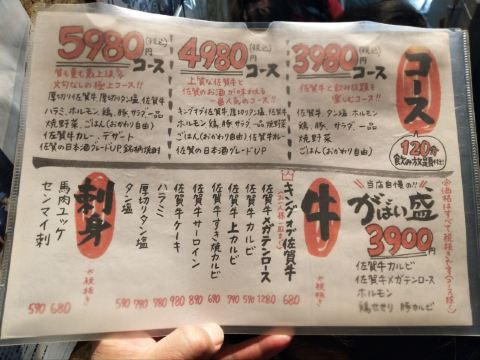 コース
120分
飲み放題付き
3980円(税込)コース
佐賀牛と飲み放題を
楽しむコース!!
佐賀牛、タン塩、ホルモン
鶏、豚、サラダ、一品
焼野菜
ごはん(おかわり自由)
4980円(税込)コース
上質な佐賀牛と
佐賀のお酒が味わえる
一番人気のコース!!
キングオブ佐賀牛、厚切りタン塩、佐賀牛
ホルモン、鶏、豚、サラダ、一品、焼野菜
ごはん(おかわり自由)佐賀牛カレー
佐賀の日本酒グレードUP
5980円(税込)コース
質も量も最上級な
文句なしの極上コース!!
厚切り佐賀牛、厚切りタン塩、佐賀牛
ハラミ、ホルモン、鶏、豚、サラダ、一品
焼野菜、ごはん(おかわり自由)
佐賀牛カレー、デザート
佐賀の日本酒グレードUP、銘柄焼酎
当店自慢の!!
がばい盛
3900円
佐賀牛カルビ
佐賀牛メガテンロース
ホルモン
鶏せせり 豚カルビ
牛
キングオブ佐賀牛 680
佐賀牛メガテンロース 1280
佐賀牛カルビ 590
佐賀牛上カルビ 790
佐賀牛すき焼カルビ 690
佐賀牛サーロイン 890
佐賀牛ケーキ 980
ハラミ 790
厚切りタン塩 790
タン塩 590
刺身
※税抜き
馬肉ユッケ 680
センマイ刺 590